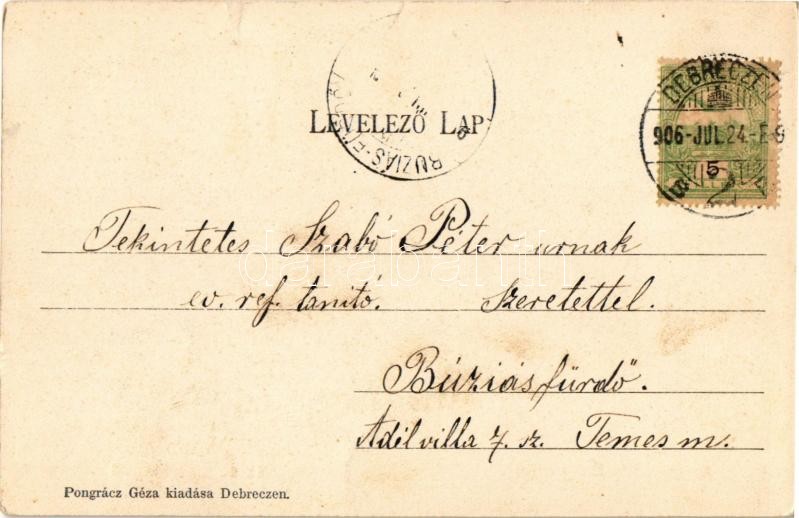 LEVELEZŐ LAP
DEBRECZEN
906-JUL.24.-E 9
5
Tekintetes Szabó Péter urnak
ev. ref. tanitó. Szeretettel.
Búziásfürdő.
Adél villa 7. sz. Temes m.
Pongrácz Géza kiadása Debreczen.
darabanth